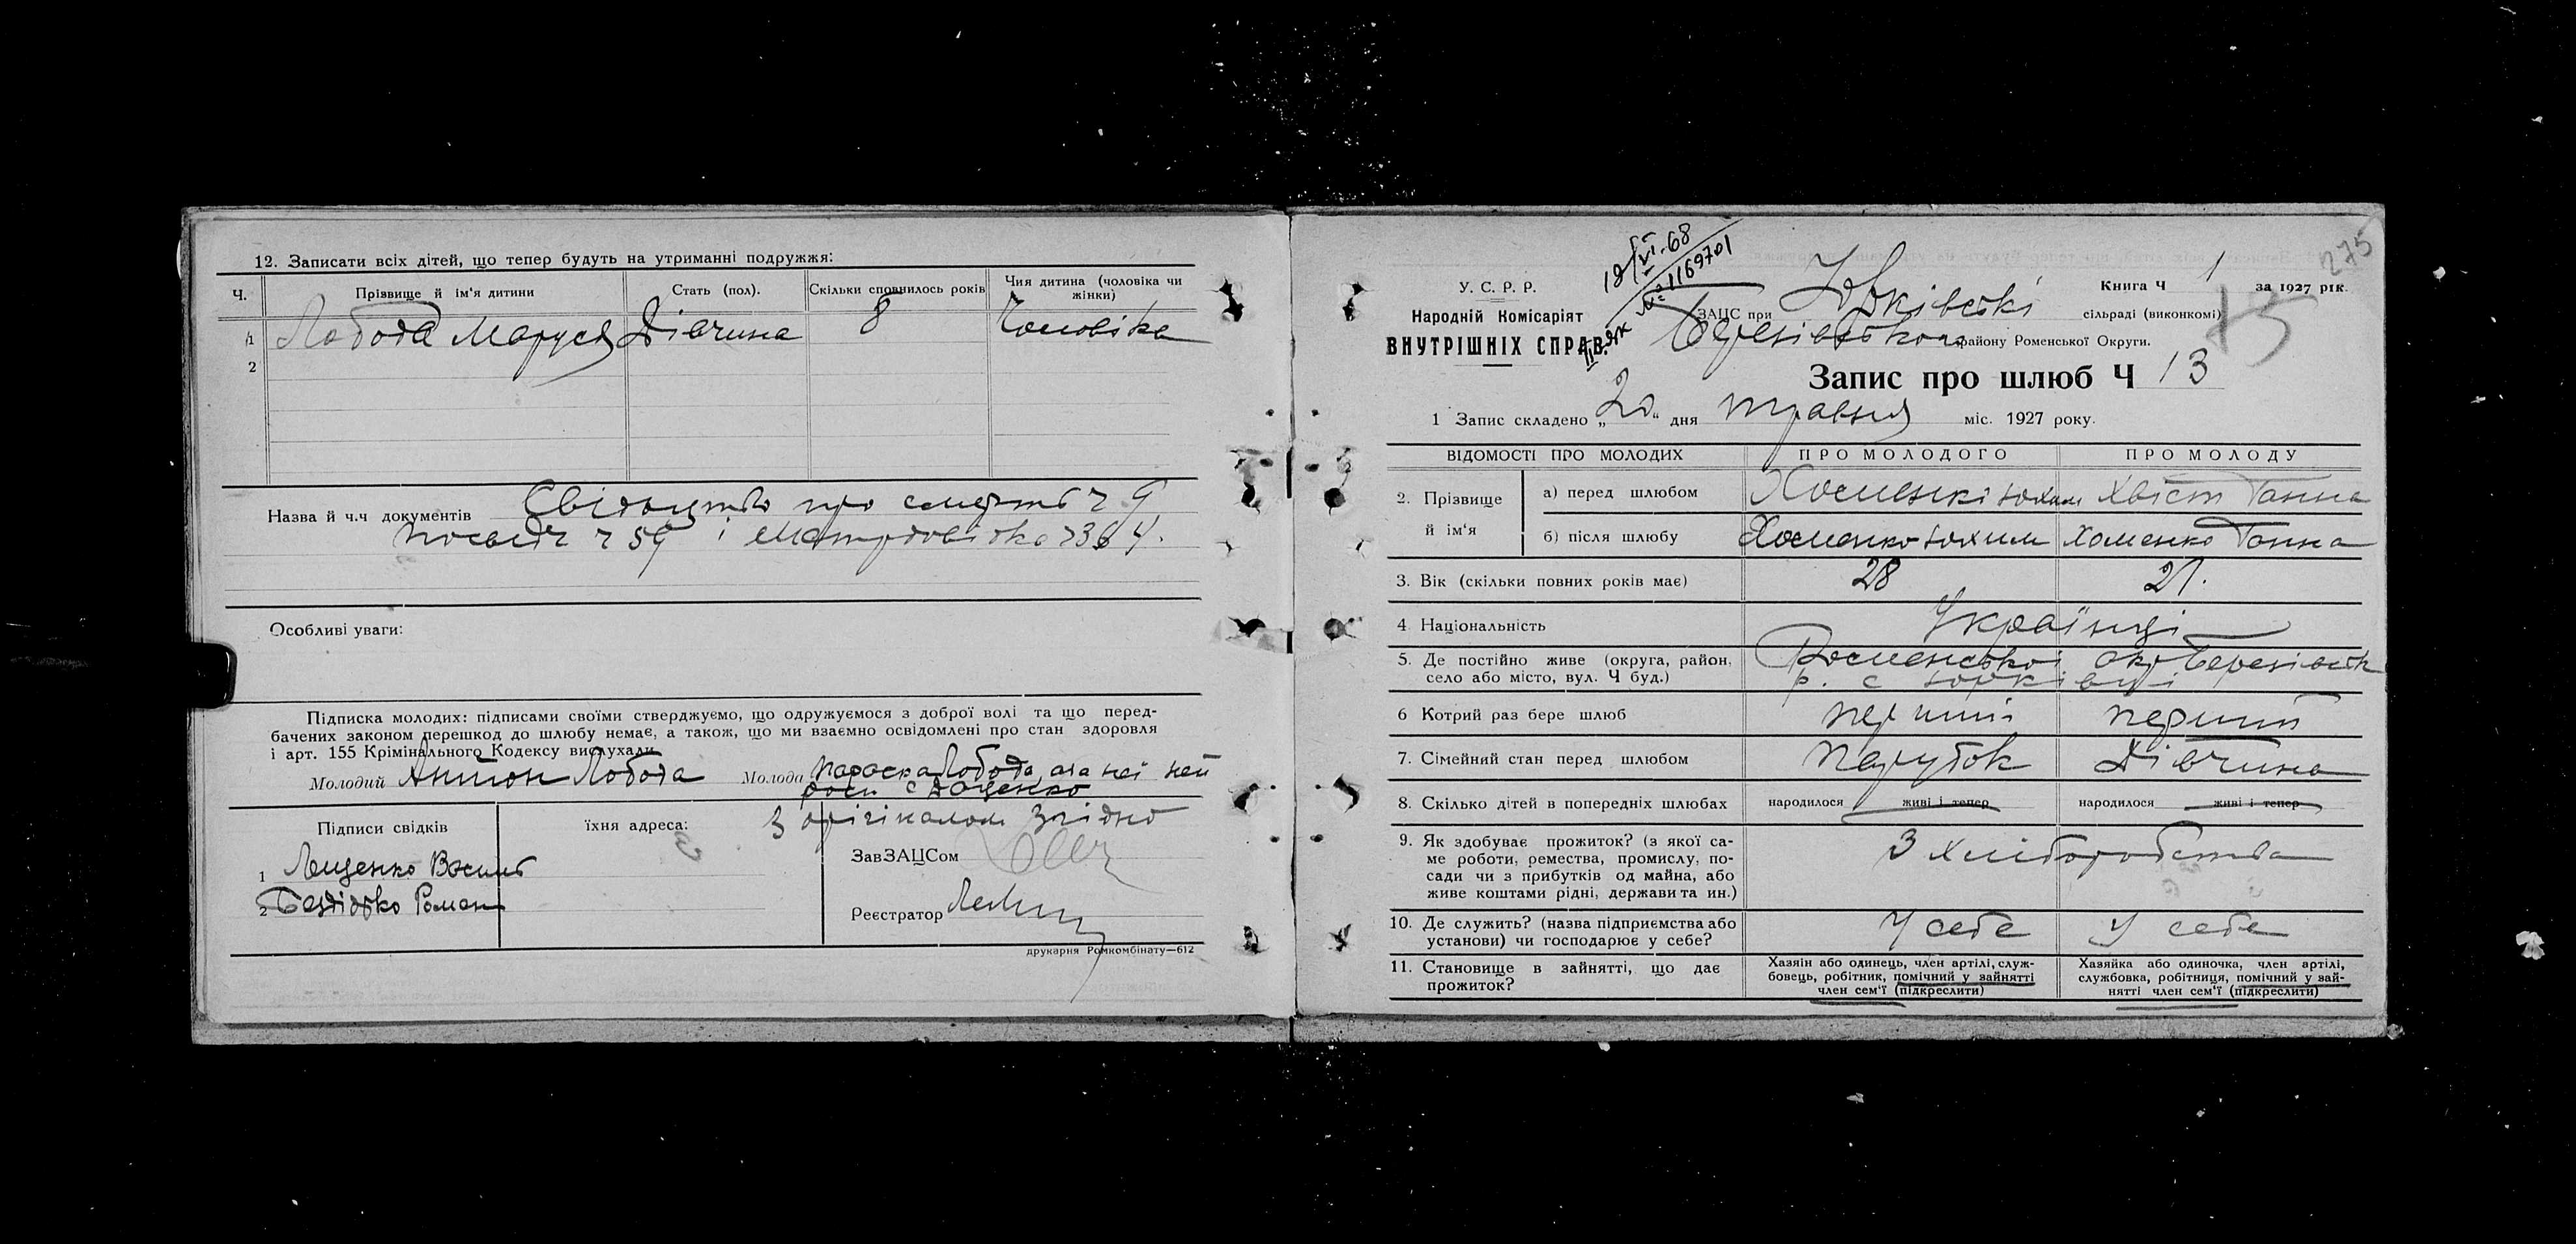 12. Записати всіх дітей, що тепер будуть на утриманні подружжя:
Ч. Прізвище й ім'я дитини Стать (пол). Скільки сповнилось років Чия дитина (чоловіка чи жінки)
1 Лобода Маруся Дівчина 8 Чоловіка
2
Назва й ч.ч документів Свідоцтво про смерть ч 9
посвідч ч 59 і
Особливі уваги:
Підписка молодих: підписами своїми стверджуємо, що одружуємося з доброї волі та що перед-
бачених законом перешкод до шлюбу немає, а також, що ми взаємно освідомлені про стан здоровля
і арт. 155 Крімінального Кодексу вислухали
Молодий Антон Лобода Молода Параска Лобода, а за неї неп
розп С Дащенко
З орігіналом Згідно
Підписи свідків їхня адреса:
ЗавЗАЦСом
1 Лещенко Василь
2 Бездідько Роман
Реєстратор
друкарня Ромкомбінату—612
275
19/VI-68
II ЯК № 1169701
У. С. Р. Р.
Народній Комісаріят
ВНУТРІШНІХ СПРАВ.
Книга Ч 1 за 1927 рік.
ЗАЦС при Юрківські сільраді (виконкомі)
Березівського району Роменської Округи.
15
Запис про шлюб Ч 13
1 Запис складено „20“ дня травня міс. 1927 року.
ВІДОМОСТІ ПРО МОЛОДИХ ПРО МОЛОДОГО ПРО МОЛОДУ
2. Прізвище й ім'я а) перед шлюбом Хоменко Юхим Хвіст Ганна
б) після шлюбу Хоменко Юхим Хоменко Ганна
3. Вік (скільки повних років має) 28 21.
4 Національність Українці
5. Де постійно живе (округа, район, Роменської окр Березівськ
село або місто, вул. Ч буд.) р. с Юрківці
6 Котрий раз бере шлюб перший перший
7. Сімейний стан перед шлюбом Парубок Дівчина
8. Скілько дітей в попередніх шлюбах народилося живі і тепер народилося живі і тепер
9. Як здобуває прожиток? (з якої са-
ме роботи, ремества, промислу, по-
сади чи з прибутків од майна, або
живе коштами рідні, держави та ин.)
З хліборобства
10. Де служить? (назва підприємства або
установи) чи господарює у себе?
У себе У себе
11. Становище в зайнятті, що дає
прожиток?
Хазяїн або одинець, член артілі, служ-
бовець, робітник, помічний у зайнятті
член сем'ї (підкреслити)
Хазяйка або одиночка, член артілі,
службовка, робітниця, помічний у зай-
нятті член сем'ї (підкреслити)